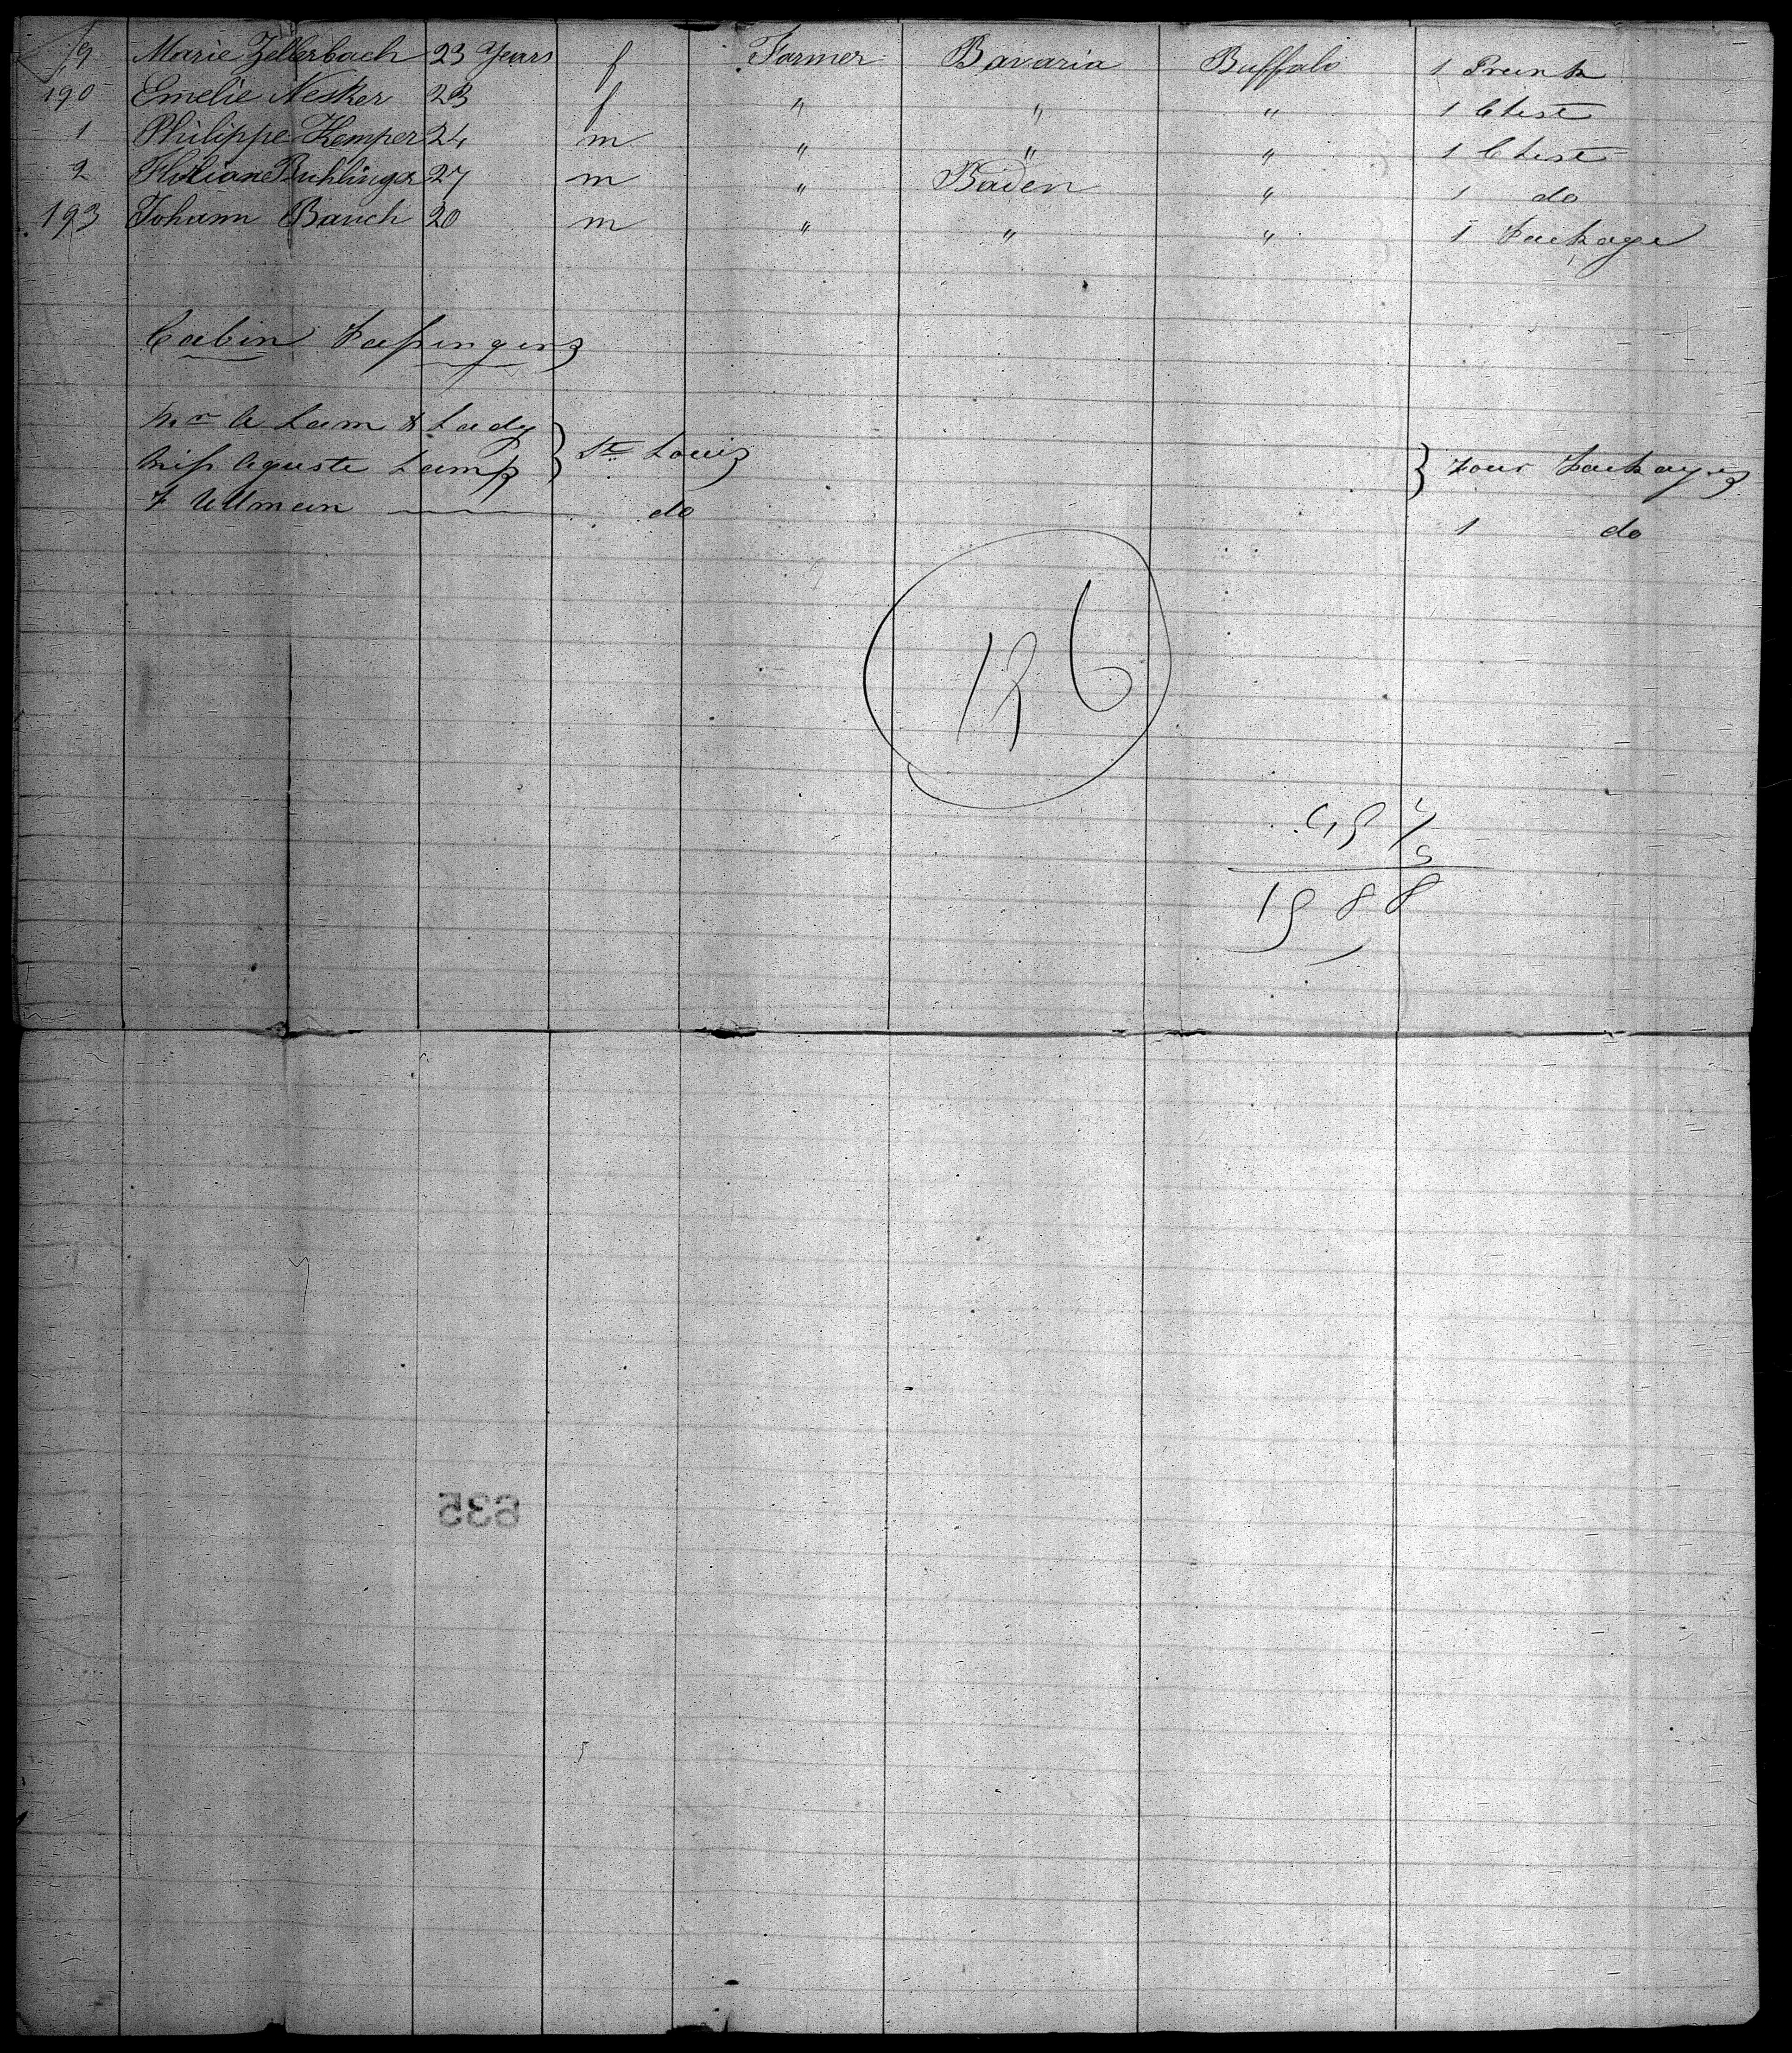 19 Marie Zellerbach 23 Years f Farmer Bavaria Buffalo 1 Trunk
190 Emelie Nesker 23 f " " " 1 Chest
1 Philippe Kemper 24 m " " " 1 Chest
2 Florian Buhlinger 27 m " Baden " 1 do
193 Johann Bauch 20 m " " " 1 Package
Cabin Passengers
Mr A Lam & Lady
Miss Aguste Lamp } St Louis } Four Packages
F Ullman do 1 do
126
1988
835